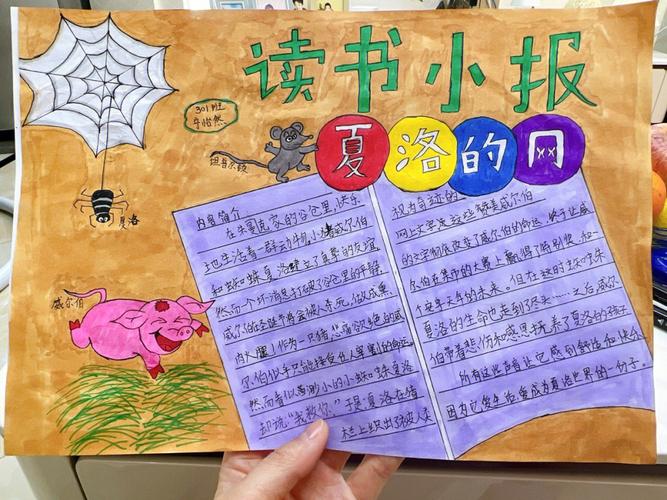 读书小报
301班
牛怡然
坦普尔顿
夏洛的网
夏洛
威尔伯
内容简介
在朱克家的谷仓里,快乐
地生活着一群动物,小猪威尔伯
和蜘蛛夏洛建立了真挚的友谊
然而一个坏消息打破了谷仓里的平静,
威尔伯在圣诞节将会被人杀死,做成熏
肉火腿!作为一只猪,悲痛欲绝的威
尔伯似乎只能接受任人宰割的命运
然而看似渺小的小蜘蛛夏洛
却说:"我救你."于是,夏洛在猪
栏上织出了被人类
视为奇迹的
网上文字,这些赞美威尔伯
的文字彻底改变了威尔伯的命运,终于让威
尔伯在集市的大赛上赢得了特别奖,和一
个安享天年的未来。但在这时,蜘蛛
夏洛的生命也走到了尽头……之后,威尔
伯带着悲伤和感恩,抚养了夏洛的孩子
所有这些声音让它感到舒适和快乐
因为它爱生活,爱成为有活世界的一份子。